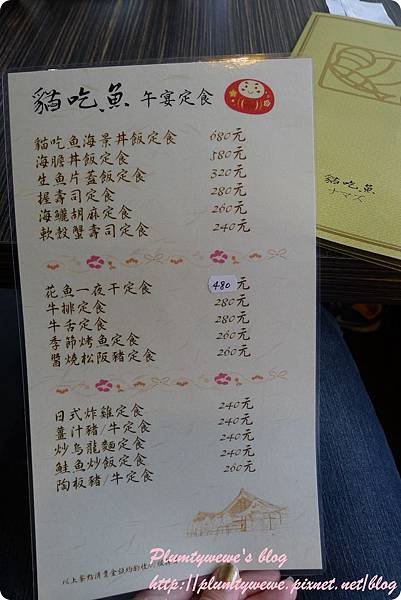 貓吃魚 午宴定食
貓吃魚海景丼飯定食 680元
海膽丼飯定食 580元
生魚片蓋飯定食 320元
握壽司定食 280元
海鱺胡麻定食 260元
軟殼蟹壽司定食 240元
花魚一夜干定食 480元
牛排定食 280元
牛舌定食 280元
季節烤魚定食 260元
醬燒松阪豬定食 260元
日式炸雞定食 240元
薑汁豬/牛定食 240元
炒烏龍麵定食 240元
鮭魚炒飯定食 240元
陶板豬/牛定食 260元
以上餐點消費金額均酌收
貓吃魚
ナマズ
Plumtywewe's blog
http://plumtywewe.pixnet.net/blog